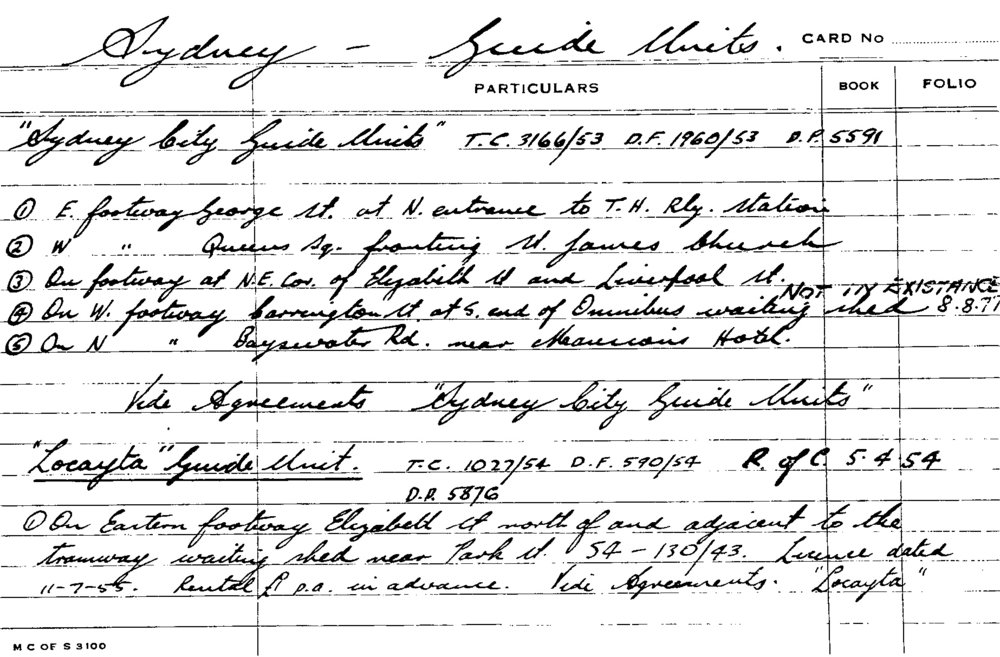 Sydney - Guide Units. CARD No
PARTICULARS BOOK FOLIO
"Sydney City Guide Units" T.C. 3166/53 D.F. 1960/53 D.P. 5591
① E. footway George St. at N. entrance to T.H. Rly. Station
② W " Queens Sq. fronting St. James Church
③ On footway at N.E. Cor. of Elizabeth St and Liverpool St.
NOT IN EXISTANCE
④ On W. footway Carrington St. at S. end of Omnibus waiting shed 8.8.77
⑤ On N " Bayswater Rd. near Mansions Hotel.
Vide Agreements "Sydney City Guide Units"
"Locayta" Guide Unit. T.C. 1027/54 D.F. 590/54 R. of C. 5.4.54
D.P. 5876
① On Eastern footway Elizabeth St north of and adjacent to the
tramway waiting shed near Park St. 54-130/43. Licence dated
11-7-55. Rental £1 p.a. in advance. Vide Agreements. "Locayta"
M C OF S 3100